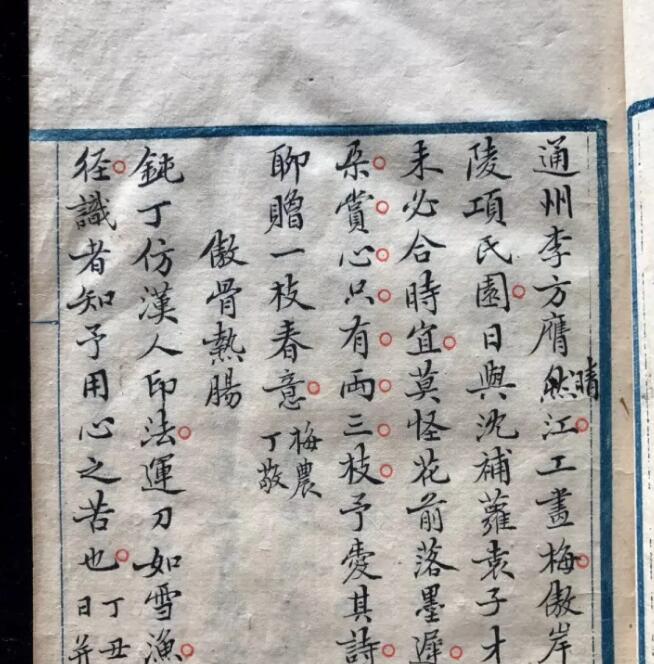 通州李方膺晴江工畫梅傲岸
陵項氏園日與沈補蘿袁子才
未必合時宜莫怪花前落墨遲
朶賞心只有兩三枝予愛其詩
聊贈一枝春意梅農丁敬
傲骨熱腸
鈍丁仿漢人印法運刀如雪漁
径識者知予用心之苦也丁丑日并